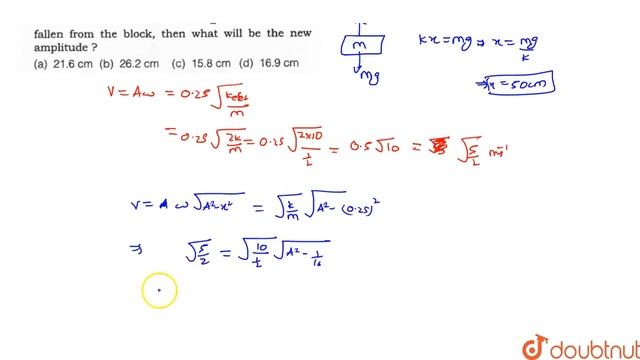 fallen from the block, then what will be the new
amplitude ?
(a) 21.6 cm (b) 26.2 cm (c) 15.8 cm (d) 16.9 cm
m
mg
kx = mg ⇒ x = mg/k
⇒ x = 50cm
V = Aω = 0.25 √(/m)
= 0.25 √(2k/m) = 0.25 √(2×10/1) = 0.5√10 = √(5/2) ms⁻¹
V = ω √(A²-x²) = √(k/m) √(A²-(0.25)²)
⇒ √(5/2) = √(10/1) √(A²-1/16)
doubtnut